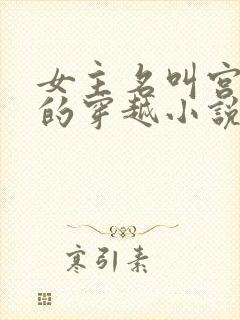 女主名叫宫
的穿越小說
寒引素